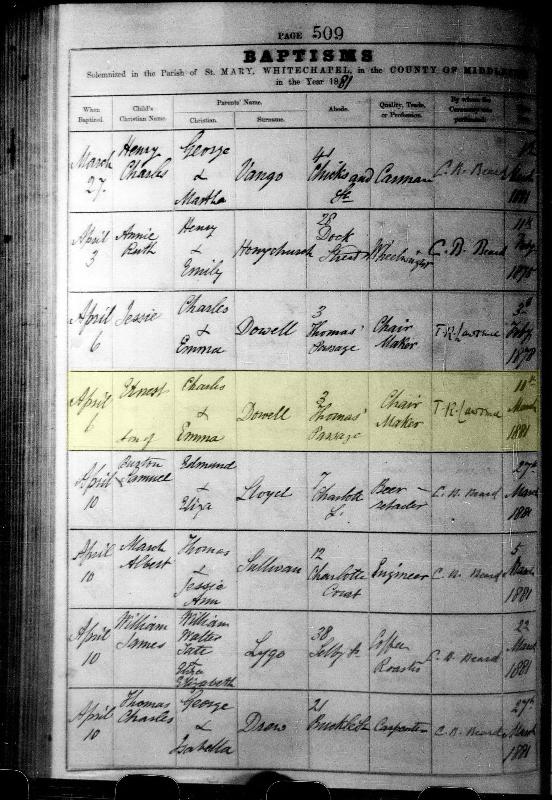 PAGE 509
BAPTISMS
Solemnized in the Parish of St. MARY, WHITECHAPEL, in the COUNTY OF MIDDLE
in the Year 1881
When Baptized. Child's Christian Name. Parents' Name. Christian. Surname. Abode. Quality, Trade, or Profession. By whom the Ceremony was performed.
March 27. Henry Charles George & Martha Vango 41 Chicksand St Carman C. N. Beard March 1881
April 3 Annie Ruth Henry & Emily Honychurch 28 Dock Street Wheelwright C. N. Beard 11th
April 6 Jessie Charles & Emma Dowell 3 Thomas' Passage Chair Maker T. R. Lawrence 1878
April 6 Ernest son of Charles & Emma Dowell 3 Thomas' Passage Chair Maker T. R. Lawrence March 1881
April 10 Buxton Samuel Edmund & Eliza Lloyd 7 Charlotte Beer retailer C. N. Beard 27th March 1881
April 10 March Albert Thomas & Jessie Ann Sullivan 12 Charlotte Court Engineer C. N. Beard 5 March 1881
April 10 William James William Walter Tate Eliza Elizabeth Lygo 38 Selby St Coffee Roaster C. N. Beard 22 March 1881
April 10 Thomas Charles George & Isabella Drew 21 Buckle St Carpenter C. N. Beard 27th March 1881